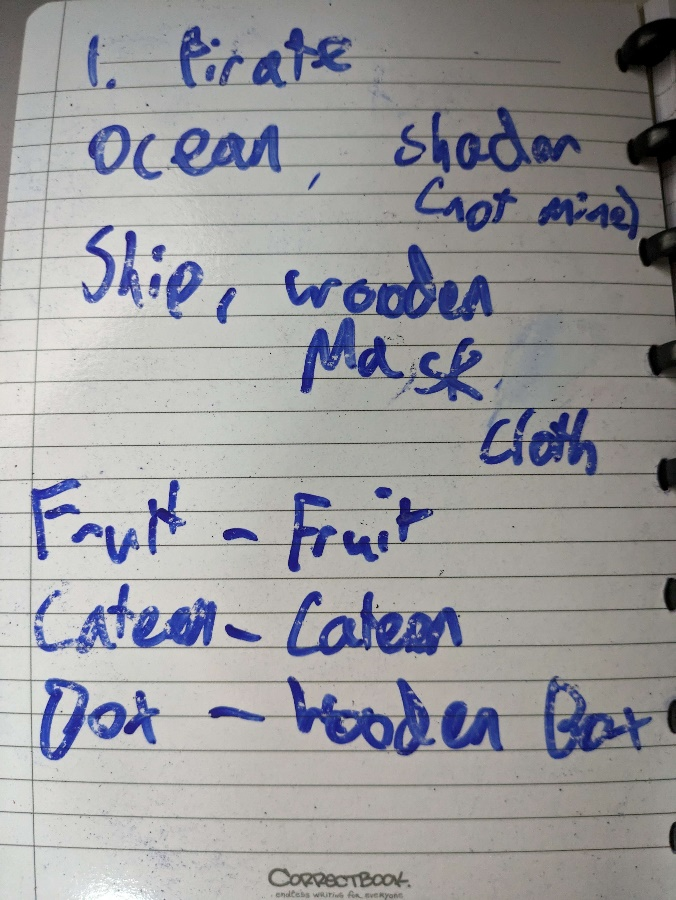 1. Pirate
Ocean, shadow
(not mine)
Ship, wooden
Mask
cloth
Fruit - Fruit
Cateen - Cateen
Box - Wooden Box
CORRECTBOOK.
endless writing for everyone